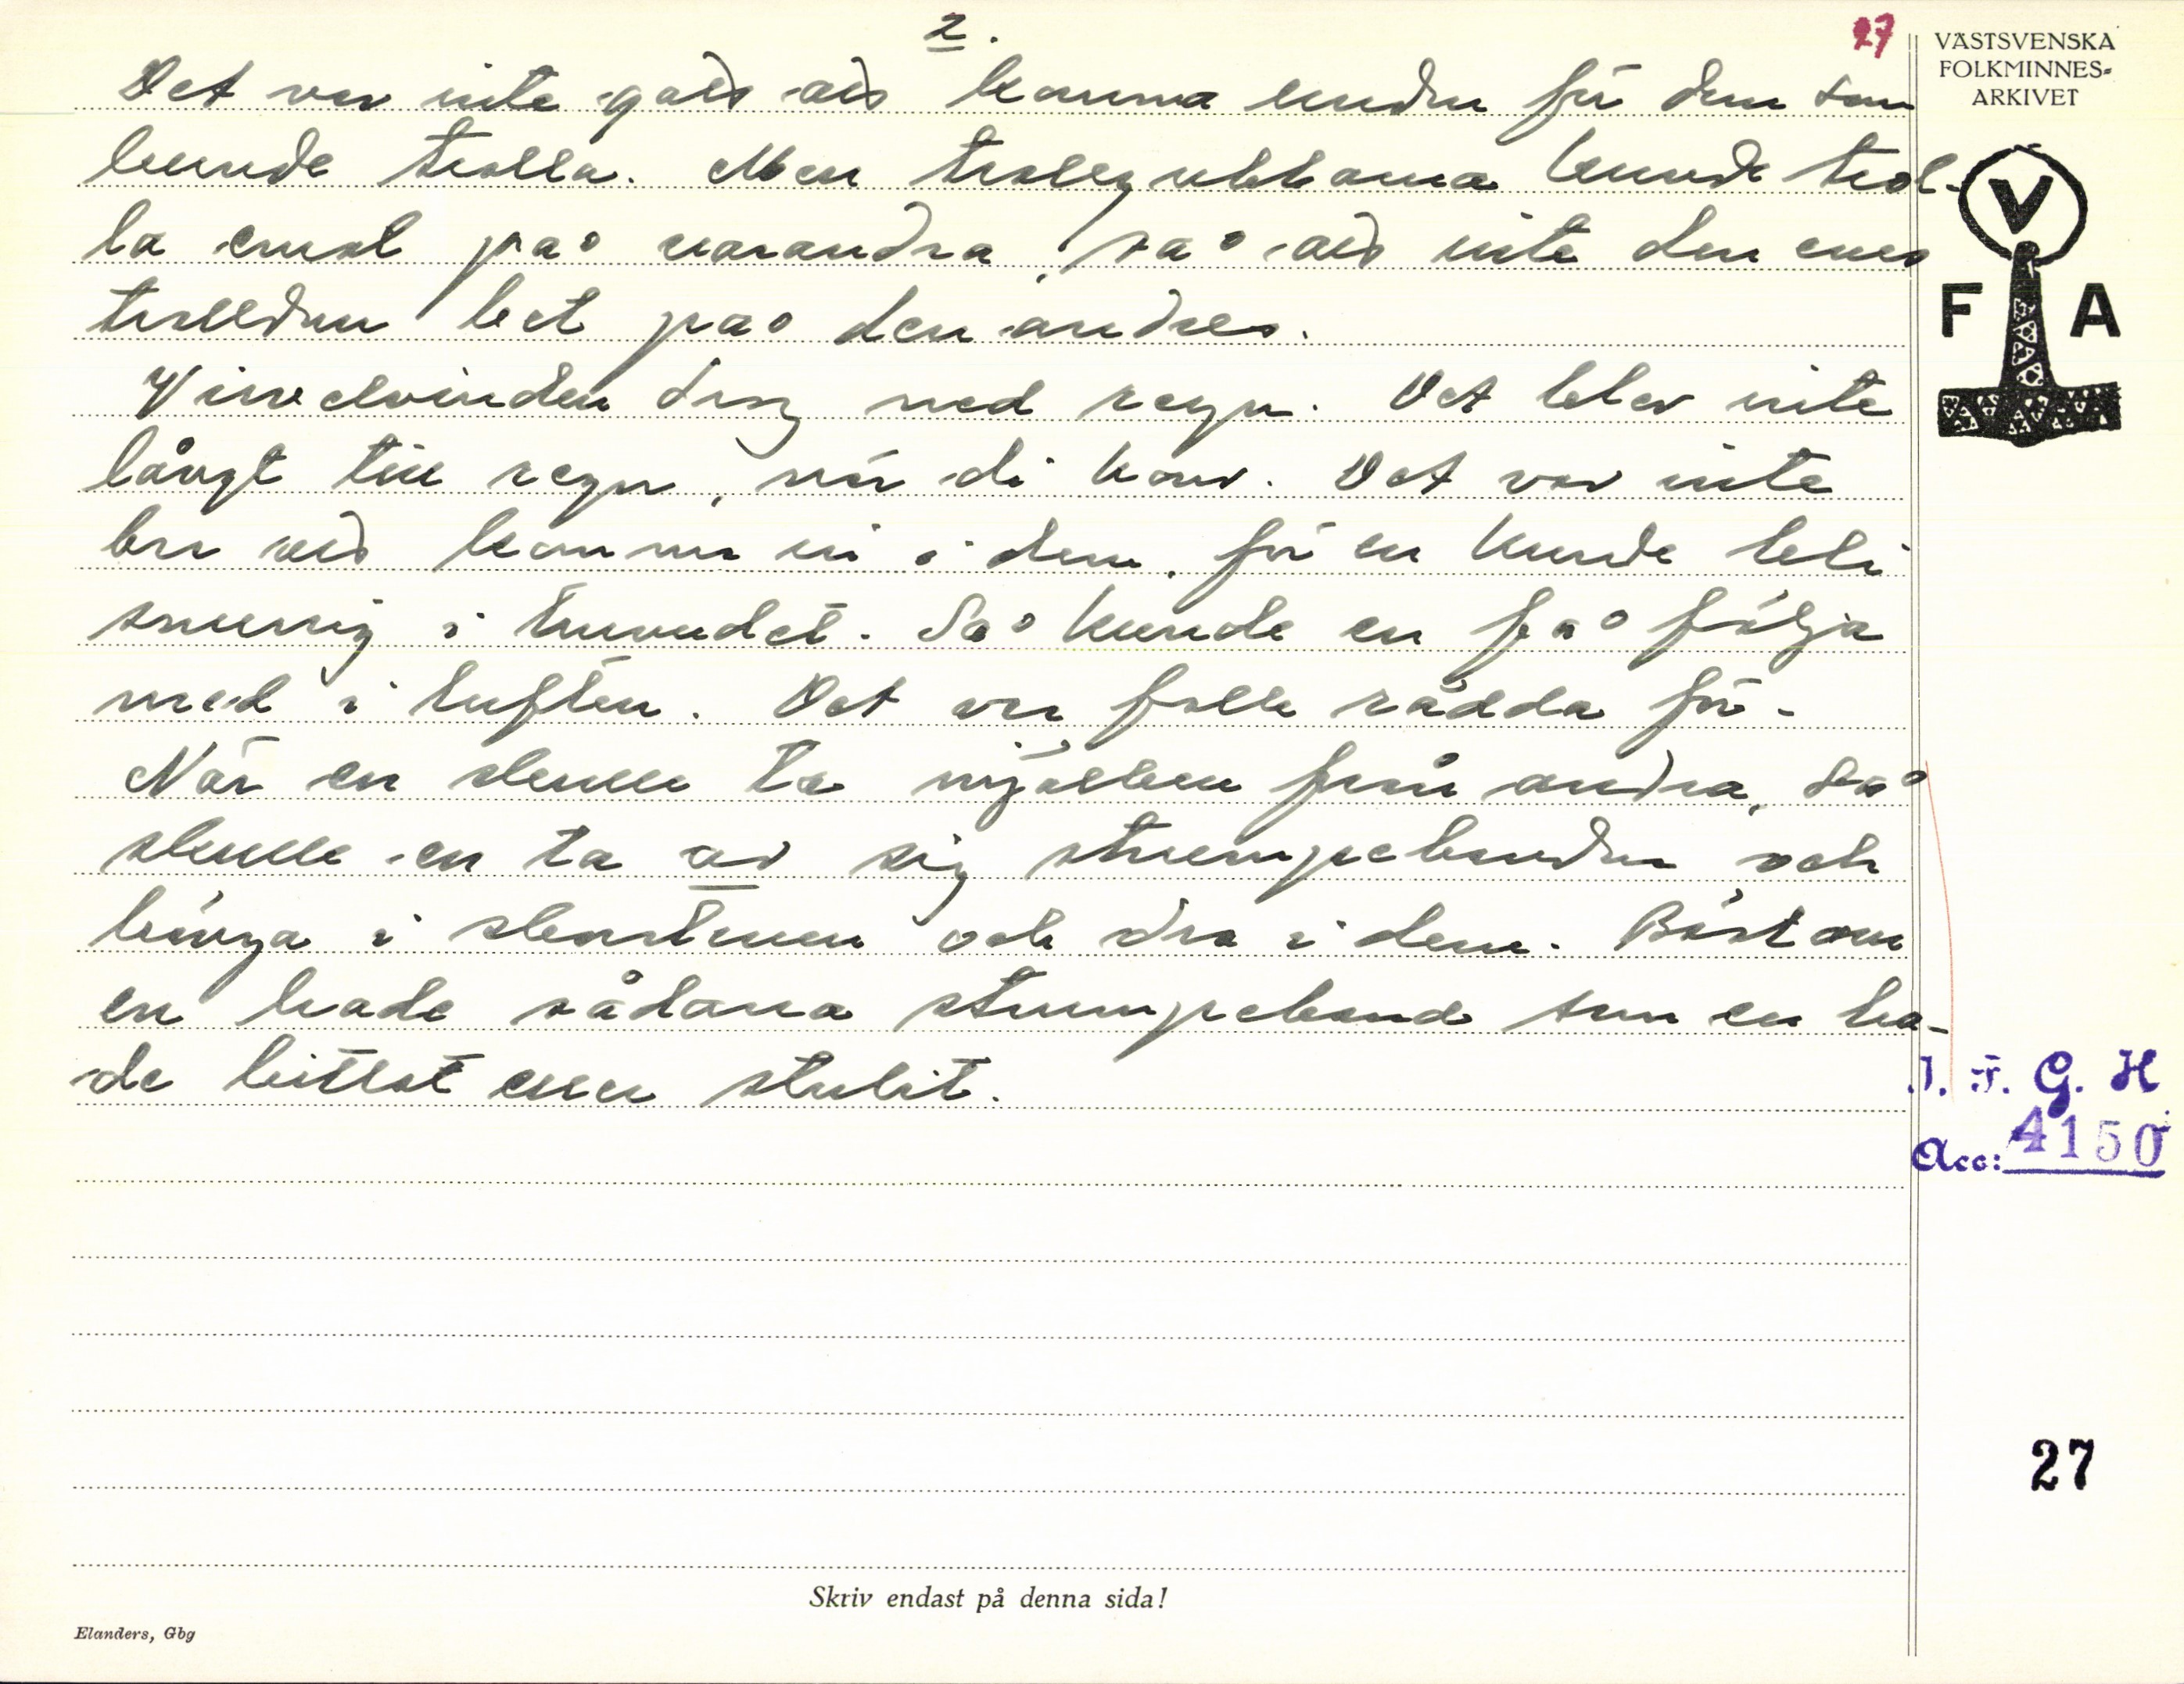 2.
27
VÄSTSVENSKA
FOLKMINNES-
ARKIVET
Det var inte gått att komma undan för dem som
kunde trolla. Men trollgubbarna kunde trol-
la emot på varandra, så att inte den enes
trolldom bet på den andres.
V
F A
Virvelvinden drog med regn. Det blev inte
långt till regn, när di kom. Det var inte
bra att komma in i dem, för en kunde bli
snurrig i huvudet. Så kunde en få följa
med i luften. Det var folk rädda för.
När en skulle ta mjölken från andra, så
skulle en ta av sig strumpebanden och
hänga i skorstenen och dra i dem. Bäst om
en hade sådana strumpeband som en ha-
de hittat eller stulit.
I. F. G. H
Acc: 4150
27
Skriv endast på denna sida!
Elanders, Gbg